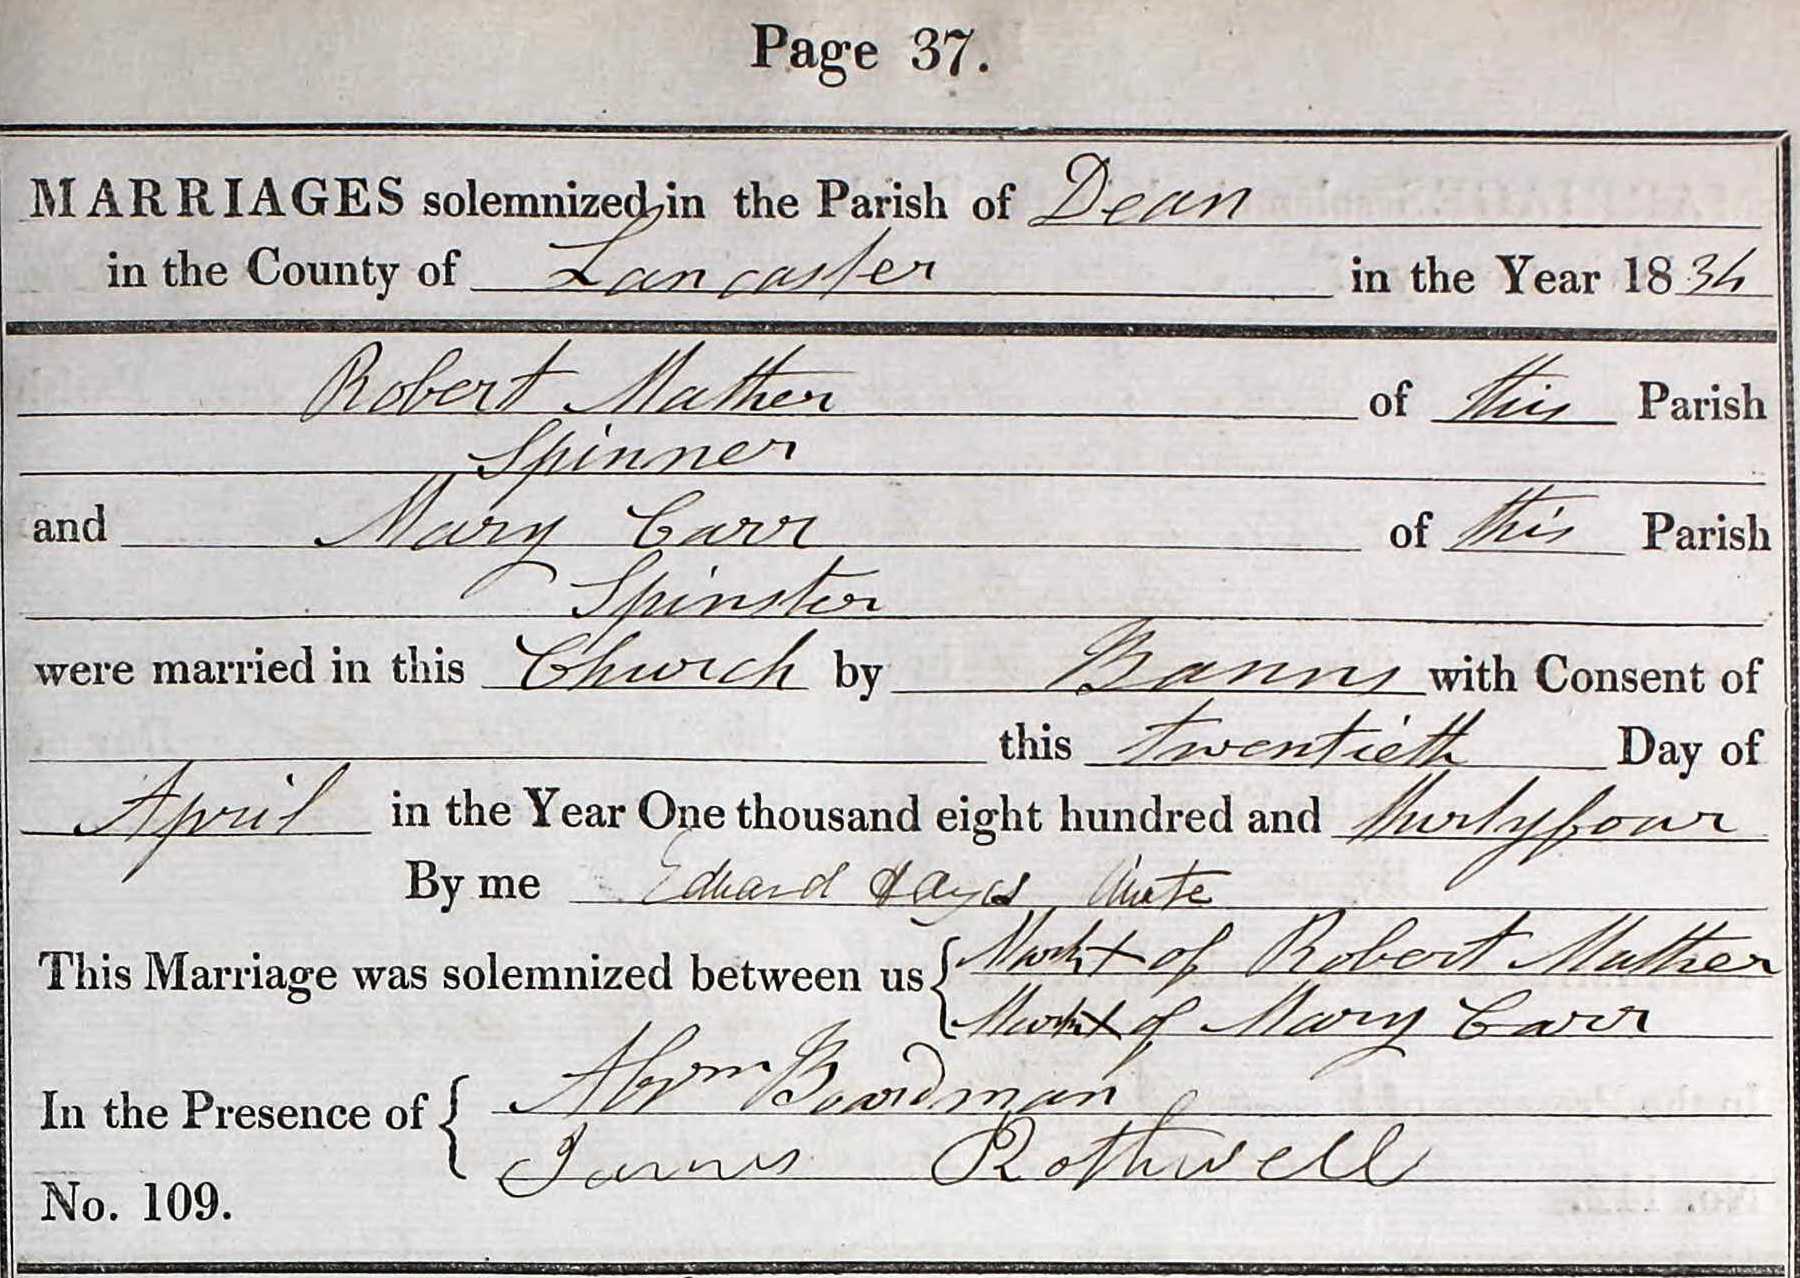 Page 37.
MARRIAGES solemnized in the Parish of Dean
in the County of Lancaster in the Year 1834
Robert Mather of this Parish
Spinner
and Mary Carr of this Parish
Spinster
were married in this Church by Banns with Consent of
this twentieth Day of
April in the Year One thousand eight hundred and thirtyfour
By me Edward Hayes
This Marriage was solemnized between us { Mark X of Robert Mather
Mark X of Mary Carr
In the Presence of { Abrm Boardman
James Rothwell
No. 109.